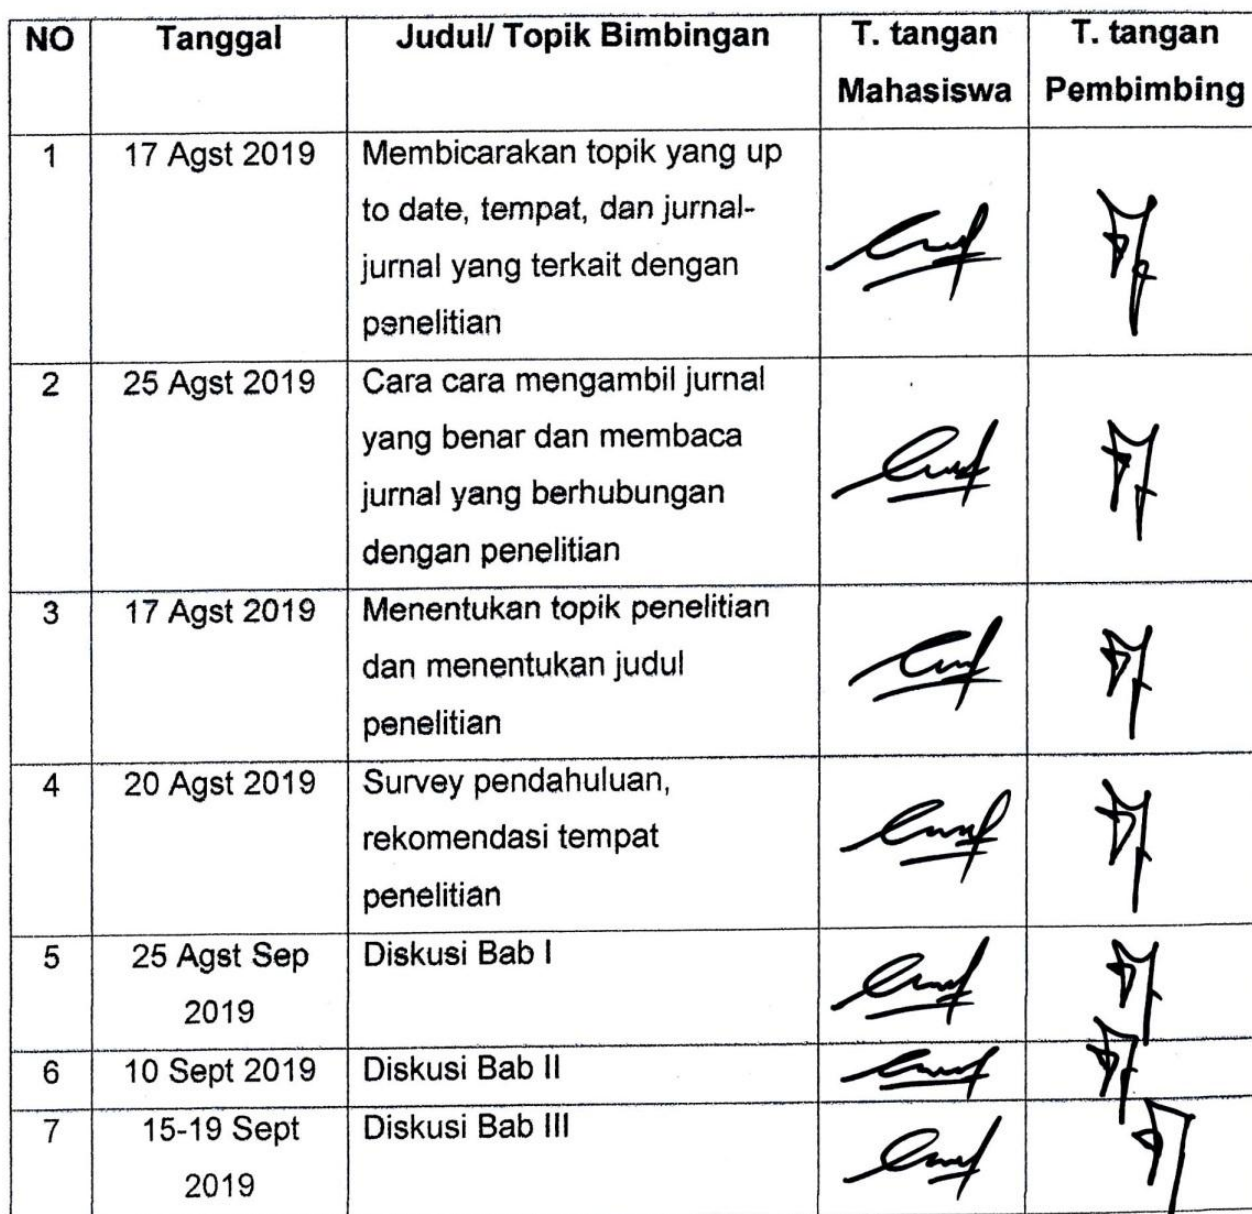 NO Tanggal Judul/ Topik Bimbingan T. tangan T. tangan
Mahasiswa Pembimbing
1 17 Agst 2019 Membicarakan topik yang up
to date, tempat, dan jurnal-
jurnal yang terkait dengan
penelitian
2 25 Agst 2019 Cara cara mengambil jurnal
yang benar dan membaca
jurnal yang berhubungan
dengan penelitian
3 17 Agst 2019 Menentukan topik penelitian
dan menentukan judul
penelitian
4 20 Agst 2019 Survey pendahuluan,
rekomendasi tempat
penelitian
5 25 Agst Sep Diskusi Bab I
2019
6 10 Sept 2019 Diskusi Bab II
7 15-19 Sept Diskusi Bab III
2019